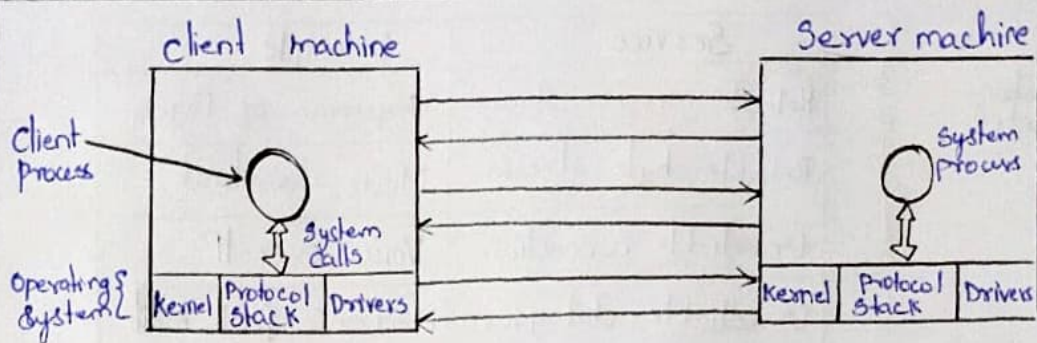 Client machine
Server machine
Client
Process
System
calls
System
procurs
Operating
System
Kernel
Protocol
Stack
Drivers
Kernel
Protocol
Stack
Drivers